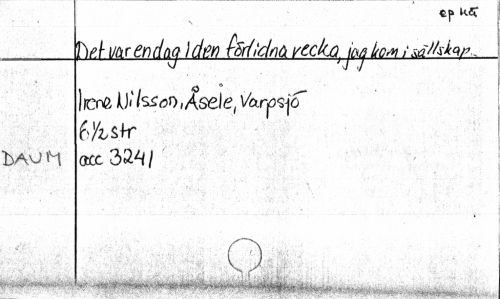 ep kä
Det var en dag i den förlidna vecka, jag kom i sällskap.
Irene Nilsson, Åsele, Varpsjö
6 1/2 str
DAUM acc 3241